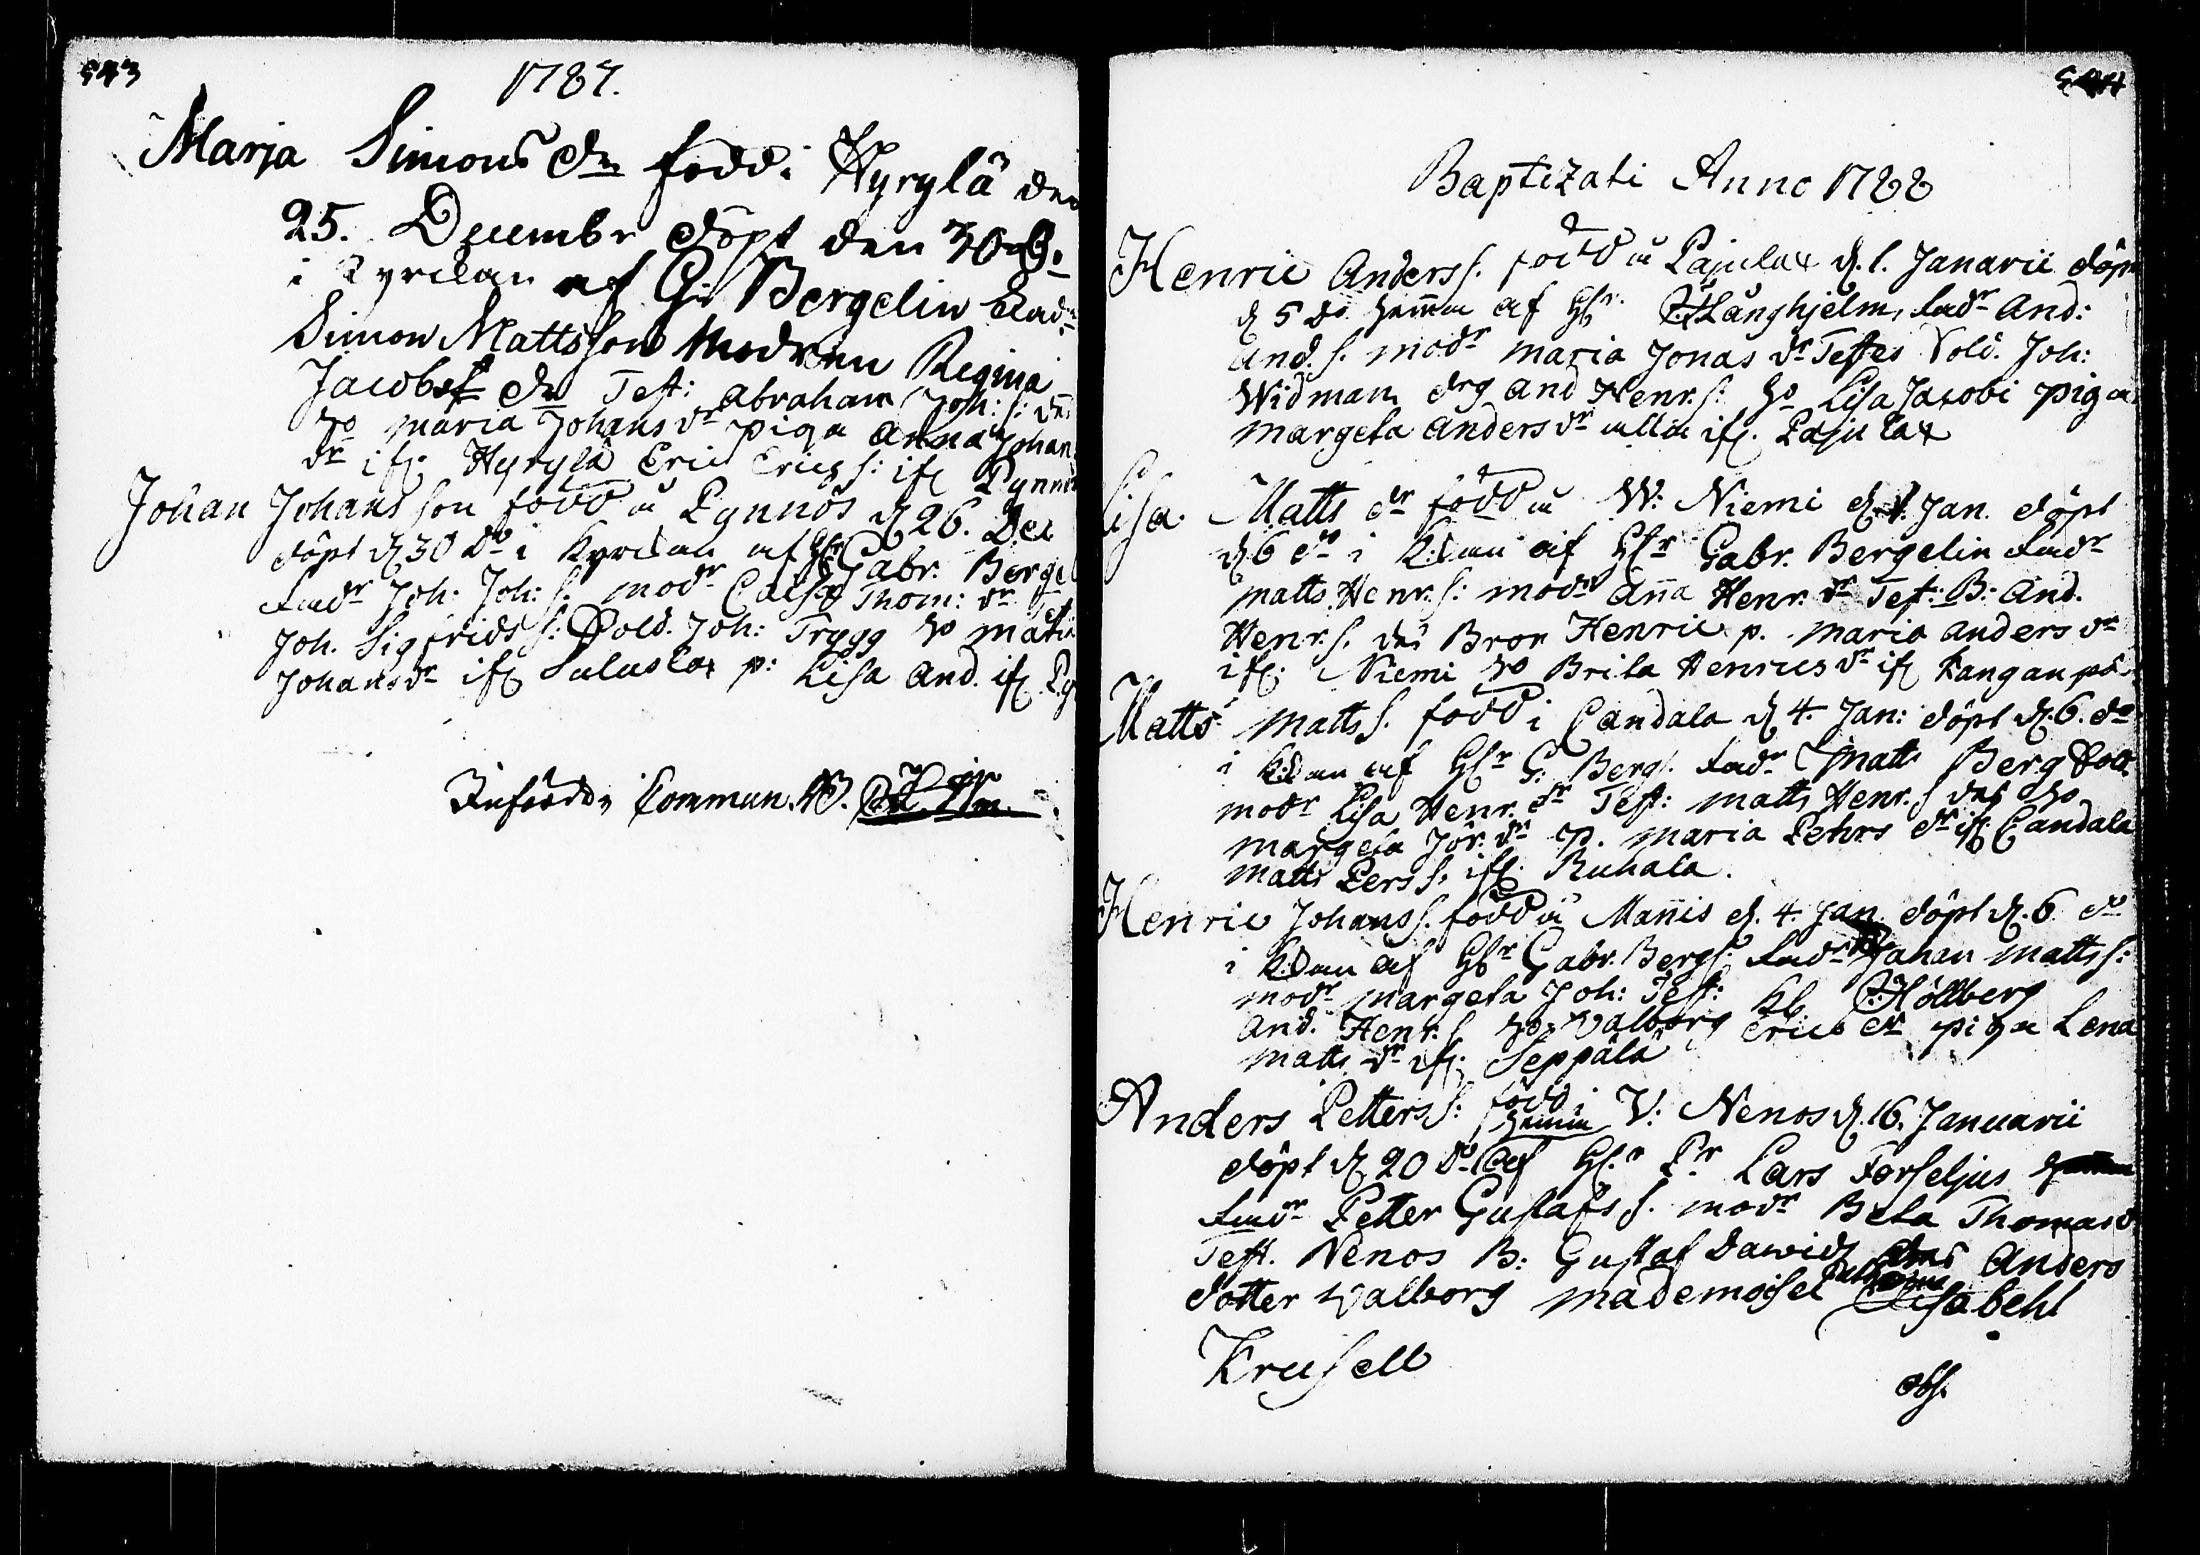 543
1787.
Maria Simons dr född i Hyrylä den
25. Decembr döpt den 30 do
i Kyrckan af G: Bergelin Fadr
Simon Mattsson modren Regina
Jacobs dr Test: Abraham Joh: s: des
ho Maria Johans dr piga Anna Johans
dr ifr. Hyrylä Eric Erics s: ifr Pynnös
Johan Johansson född i Pynnös d 26. Dec
döpt d 30 do i Kyrckan af Hr Gabr. Berge
Fadr Joh. Joh: s. modr Caisa Thom: dr Test
Joh. Sigfrids s: Sold. Joh: Trygg ho
Johans dr ifr p: Lisa And. ifr. Py
Införd i Commun. B.
544
Baptizati Anno 1788
Henric Anders s. född i Pajula d. 1. Janarii döpt
d 5 do hemma af Hr. Långhjelm, Fadr And:
And. s. modr Maria Jonas dr Testes Sold. Joh:
Widman drg And Henr. s: ho Lisa Jacobi piga
Margeta Anders dr alla ifr. Pajula
Lisa Matts dr född i W: Niemi d. Jan. döpt
d 6 do i K:kan af Hr Gabr. Bergelin Fadr
Matts Henr. s: modr Anna Henr. dr Test: B: And.
Henr. s. des Bror Henric p. Maria Anders dr
ifr. Niemi ho Brita Henrics dr ifr Kanganpä
Matts Matts s. född i Candala d 4. Jan: döpt d. 6. do
i K:kan af Hr G: Berg. Fadr Matts Berg Sold.
modr Lisa Henr. dr Test: Matts Henr. s des ho
Margeta Jör. dr p. Maria Pehrs dr ifr. Candala
Matts Pers s. ifr. Ruhala.
Henric Johans s. född i Mannis d. 4. Jan. döpt d. 6 do
i K:kan af Hr Gabr. Berg. Fadr Johan Matts s:
modr Margeta Joh: Test: Kl. Höllberg
And. Henr. s ho Walborg Erics dr piga Lena
Matts dr ifr. Seppälä
Anders Petters s: född i V: Nenos d. 16. Januarii
hemma
döpt d 20 do af Hr Pr Lars Forseljus
Fadr Petter Gustafs s. modr Beta Thomas d
Test. Nenos B: Gustaf Dawids des Anders
dotter Walborg Mademoisel Elisabeht
Krusell
obs.